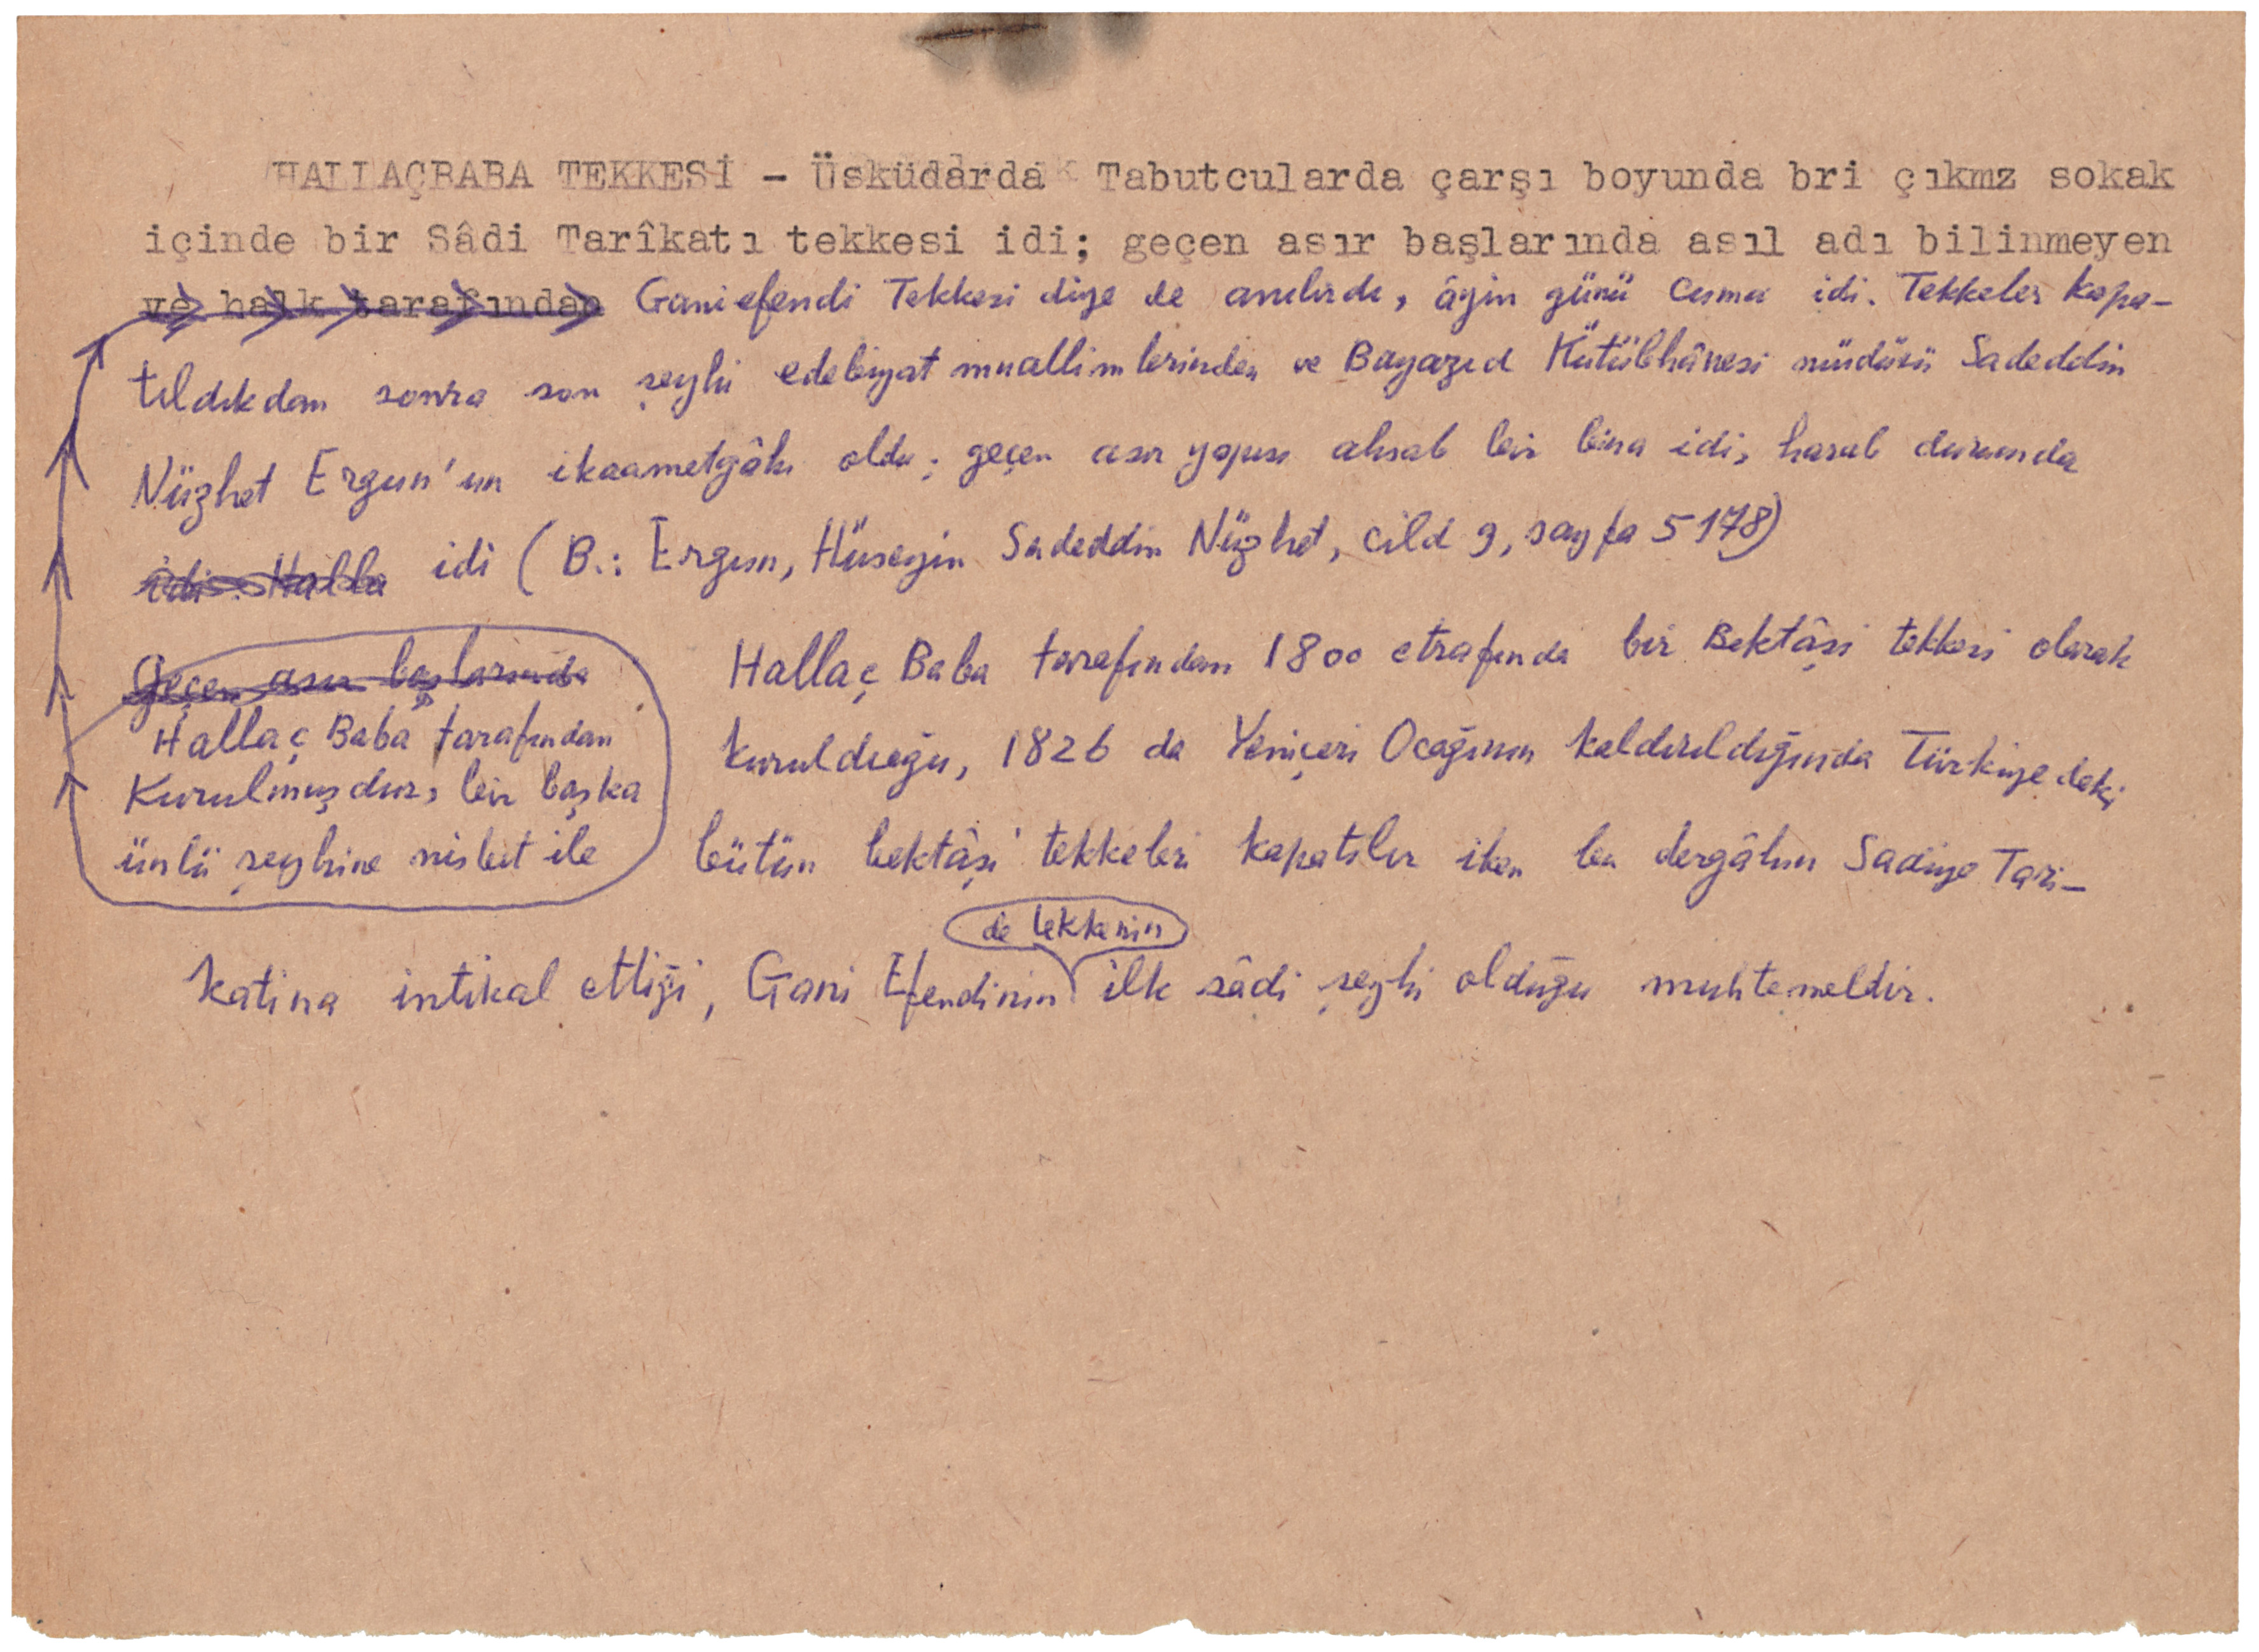 HALLAÇBABA TEKKESİ - Üsküdarda Tabutcularda çarşı boyunda bri çıkmz sokak
içinde bir Sâdi Tarîkatı tekkesi idi; geçen asır başlarında asıl adı bilinmeyen
ve halk tarafından Ganiefendi Tekkesi diye de anılırdı, âyin günü Cuma idi. Tekkeler kapa-
tıldıkdan sonra son şeyhi edebiyat muallimlerinden ve Bayazıd Kütübhânesi müdürü Sadeddin
Nüzhet Ergun'un ikaametgâhı oldu; geçen asır yapısı ahşab bir bina idi, harab durumda
idi. Halla idi (B.: Ergun, Hüseyin Sadeddin Nüzhet, cild 9, sayfa 5178)
Geçen asır başlarında
Hallaç Baba tarafından
Kurulmuşdur, bir başka
ünlü şeyhine nisbet ile
Hallaç Baba tarafından 1800 etrafında bir Bektâşi tekkesi olarak
kurulduğu, 1826 da Yeniçeri Ocağının kaldırıldığında Türkiyedeki
bütün bektâşi tekkeleri kapatılır iken bu dergâhın Sadiye Tari-
de tekkenin
katina intikal ettiği, Gani Efendinin ilk sâdi şeyhi olduğu muhtemeldir.